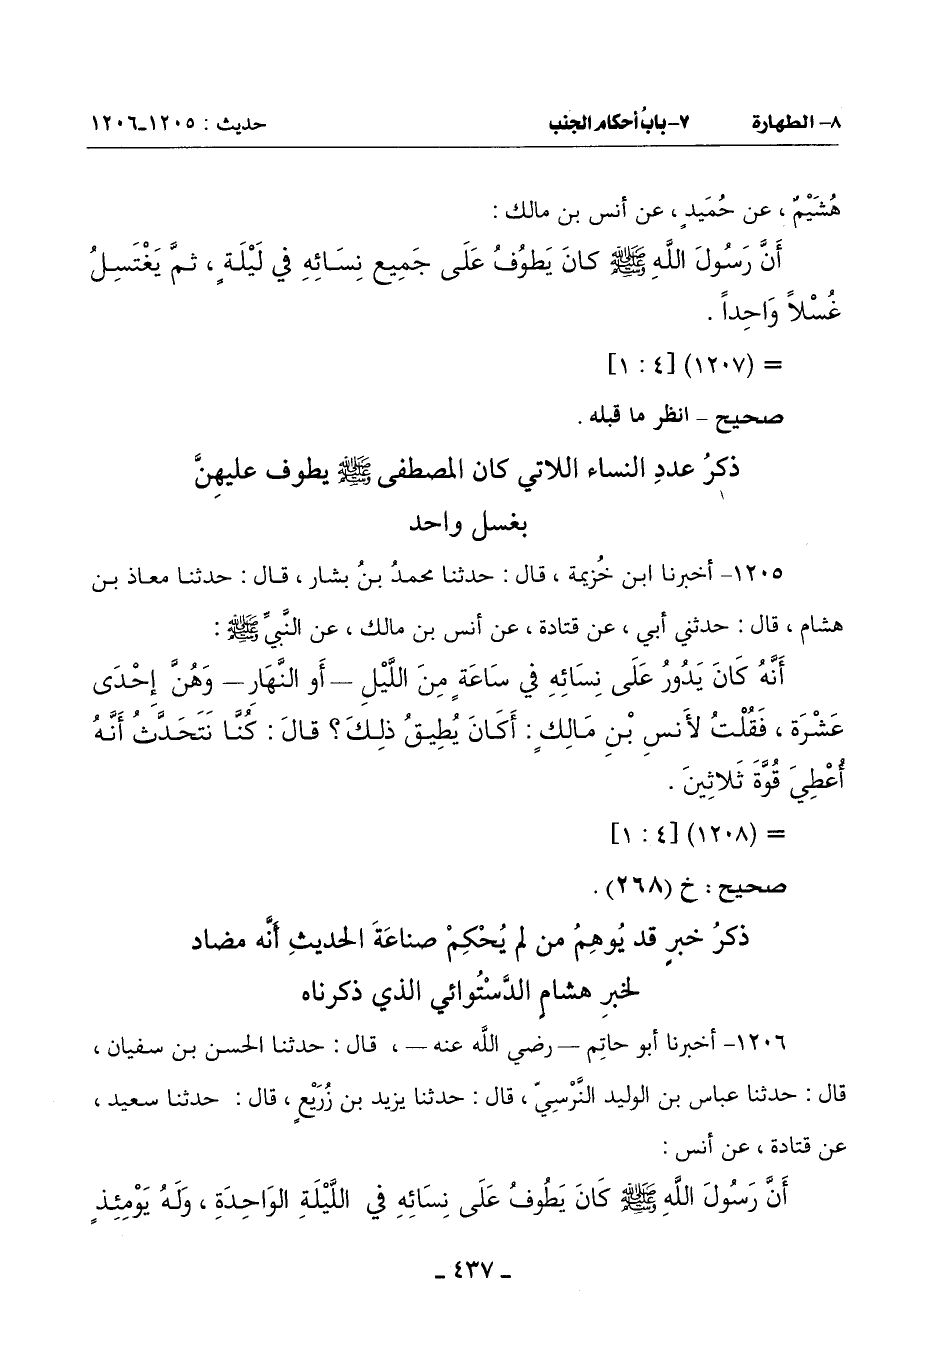 ٨- الطهارة ٧-بابُ أحكام الجنب حديث : ١٢٠٥-١٢٠٦
هُشَيْمٌ ، عن حُمَيدٍ ، عن أنس بن مالك :
أَنَّ رَسُولَ اللَّهِ ﷺ كانَ يَطُوُفُ عَلَى جَمِيعِ نِسَائِهِ فِي لَيْلَةٍ ، ثمَّ يَغْتَسِلُ
غُسْلاً وَاحِداً .
= (١٢٠٧) [٤ : ١]
صحيح – انظر ما قبله .
ذكرُ عددِ النساء اللاتي كان المصطفى ﷺ يطوف عليهِنَّ
بغسل واحد
١٢٠٥- أخبرنا ابن خُزيمة ، قال : حدثنا محمدُ بنُ بشار ، قال : حدثنا معاذ بن
هشام ، قال : حدثني أبي ، عن قتادة ، عن أنس بن مالك ، عن النَّبيِّ ﷺ :
أَنَّهُ كَانَ يَدُورُ عَلَى نِسَائِهِ فِي سَاعَةٍ مِنَ اللَّيْلِ – أو النَّهارِ – وَهُنَّ إِحْدَى
عَشْرَة ، فَقُلْتُ لأَنسِ بْنِ مَالِكٍ : أَكَانَ يُطِيقُ ذلِكَ؟ قالَ : كُنَّا نَتَحَدَّثُ أَنَّهُ
أُعْطِيَ قُوَّةَ ثَلاثِينَ .
= (١٢٠٨) [٤ : ١]
صحيح : خ (٢٦٨) .
ذكرُ خبرٍ قد يُوهِمُ من لم يُحْكِمْ صناعَةَ الحديثِ أَنَّه مضاد
لخبرِ هشامٍ الدَّسْتُوائي الذي ذكرناه
١٢٠٦- أخبرنا أبو حاتِم – رضي اللَّه عنه – ، قال : حدثنا الحسن بن سفيان ،
قال : حدثنا عباس بن الوليد النَّرْسِيّ ، قال : حدثنا يزيد بن زُرَيْعٍ ، قال : حدثنا سعيد ،
عن قتادة ، عن أنس :
أَنَّ رَسُولَ اللَّهِ ﷺ كَانَ يَطُوفُ عَلَى نِسَائِهِ فِي اللَّيْلَةِ الوَاحِدَةِ ، ولَهُ يَوْمِئِذٍ
- ٤٣٧ -